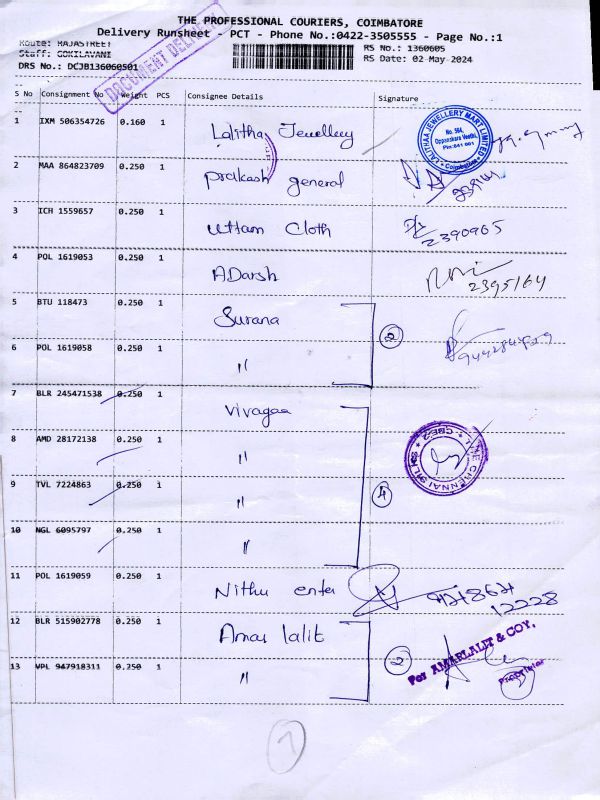 THE PROFESSIONAL COURIERS, COIMBATORE
Delivery Runsheet - PCT - Phone No.:0422-3505555 - Page No.:1
Route: RAJASTREET
RS No.: 1360605
Staff: GOKILAVANI
RS Date: 02-May-2024
DRS No.: DCJB136060501
DOCUMENT DELIVERY
S No Consignment No Weight PCS Consignee Details Signature
1 IXM 506354726 0.160 1 Lalitha Jewellery
LALITHAA JEWELLERY MART LIMITED
No. 564,
Oppanakara Veethi,
Pin:641 001
Coimbatore
2 MAA 864823709 0.250 1 prakash general
3 ICH 1559657 0.250 1 uttam Cloth 2390965
4 POL 1619053 0.250 1 ADarsh 2395164
5 BTU 118473 0.250 1 Surana
2
6 POL 1619058 0.250 1 "
7 BLR 245471538 0.250 1 Vivagaa
8 AMD 28172138 0.250 1 "
THE CHENNAI SILKS CBE2
9 TVL 7224863 0.250 1 "
4
10 NGL 6095797 0.250 1 "
11 POL 1619059 0.250 1 Nithu enter
12228
12 BLR 515902778 0.250 1 Amar lalit
2
For AMARLALIT & COY,
Proprietor
13 VPL 947918311 0.250 1 "
7